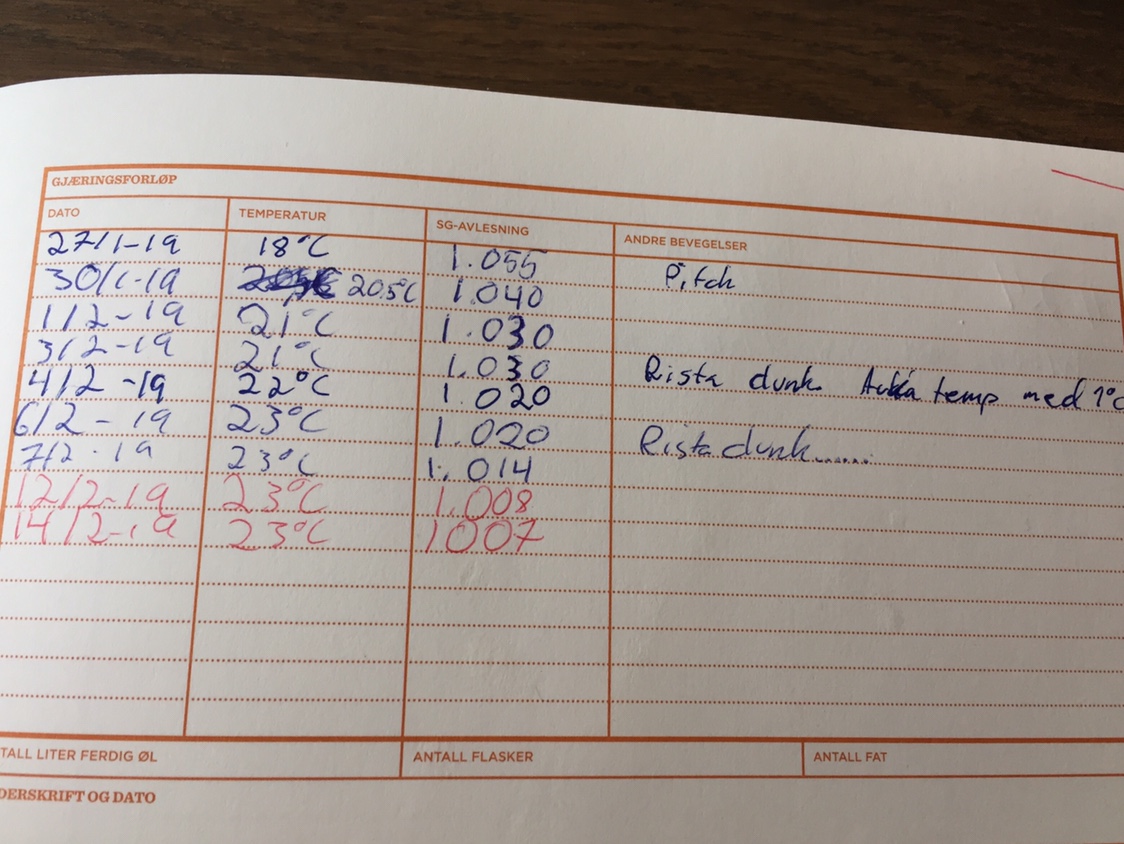 GJÆRINGSFORLØP
DATO TEMPERATUR SG-AVLESNING ANDRE BEVEGELSER
27/1-19 18°C 1.055 Pitch
30/1-19 20.5°C 1.040
1/2-19 21°C 1.030
3/2-19 21°C 1.030 Rista dunk. Auka temp med 1°C
4/2-19 22°C 1.020
6/2-19 23°C 1.020 Rista dunk......
7/2-19 23°C 1.014
12/2-19 23°C 1.008
14/2-19 23°C 1007
TALL LITER FERDIG ØL ANTALL FLASKER ANTALL FAT
DERSKRIFT OG DATO